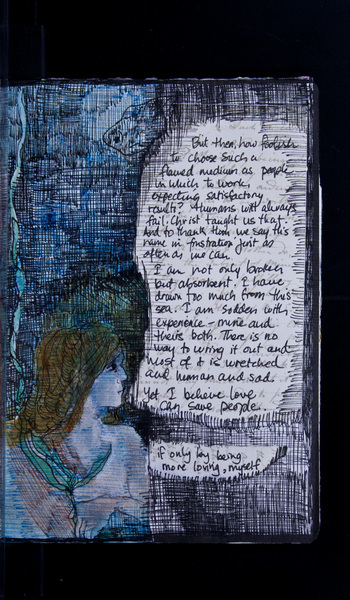 But then, how foolish
to choose such a
flawed medium as people
in which to work,
expecting satisfactory
results? Humans will always
fail. Christ taught us that.
And to thank Him we say his
name in frustration just as
often as we can.
I am not only broken
but absorbent. I have
drawn too much from this
sea. I am sodden with
experience - mine and
theirs both. There is no
way to wring it out and
most of it is wretched
and human and sad.
Yet I believe love
can save people.
if only by being
more loving, myself